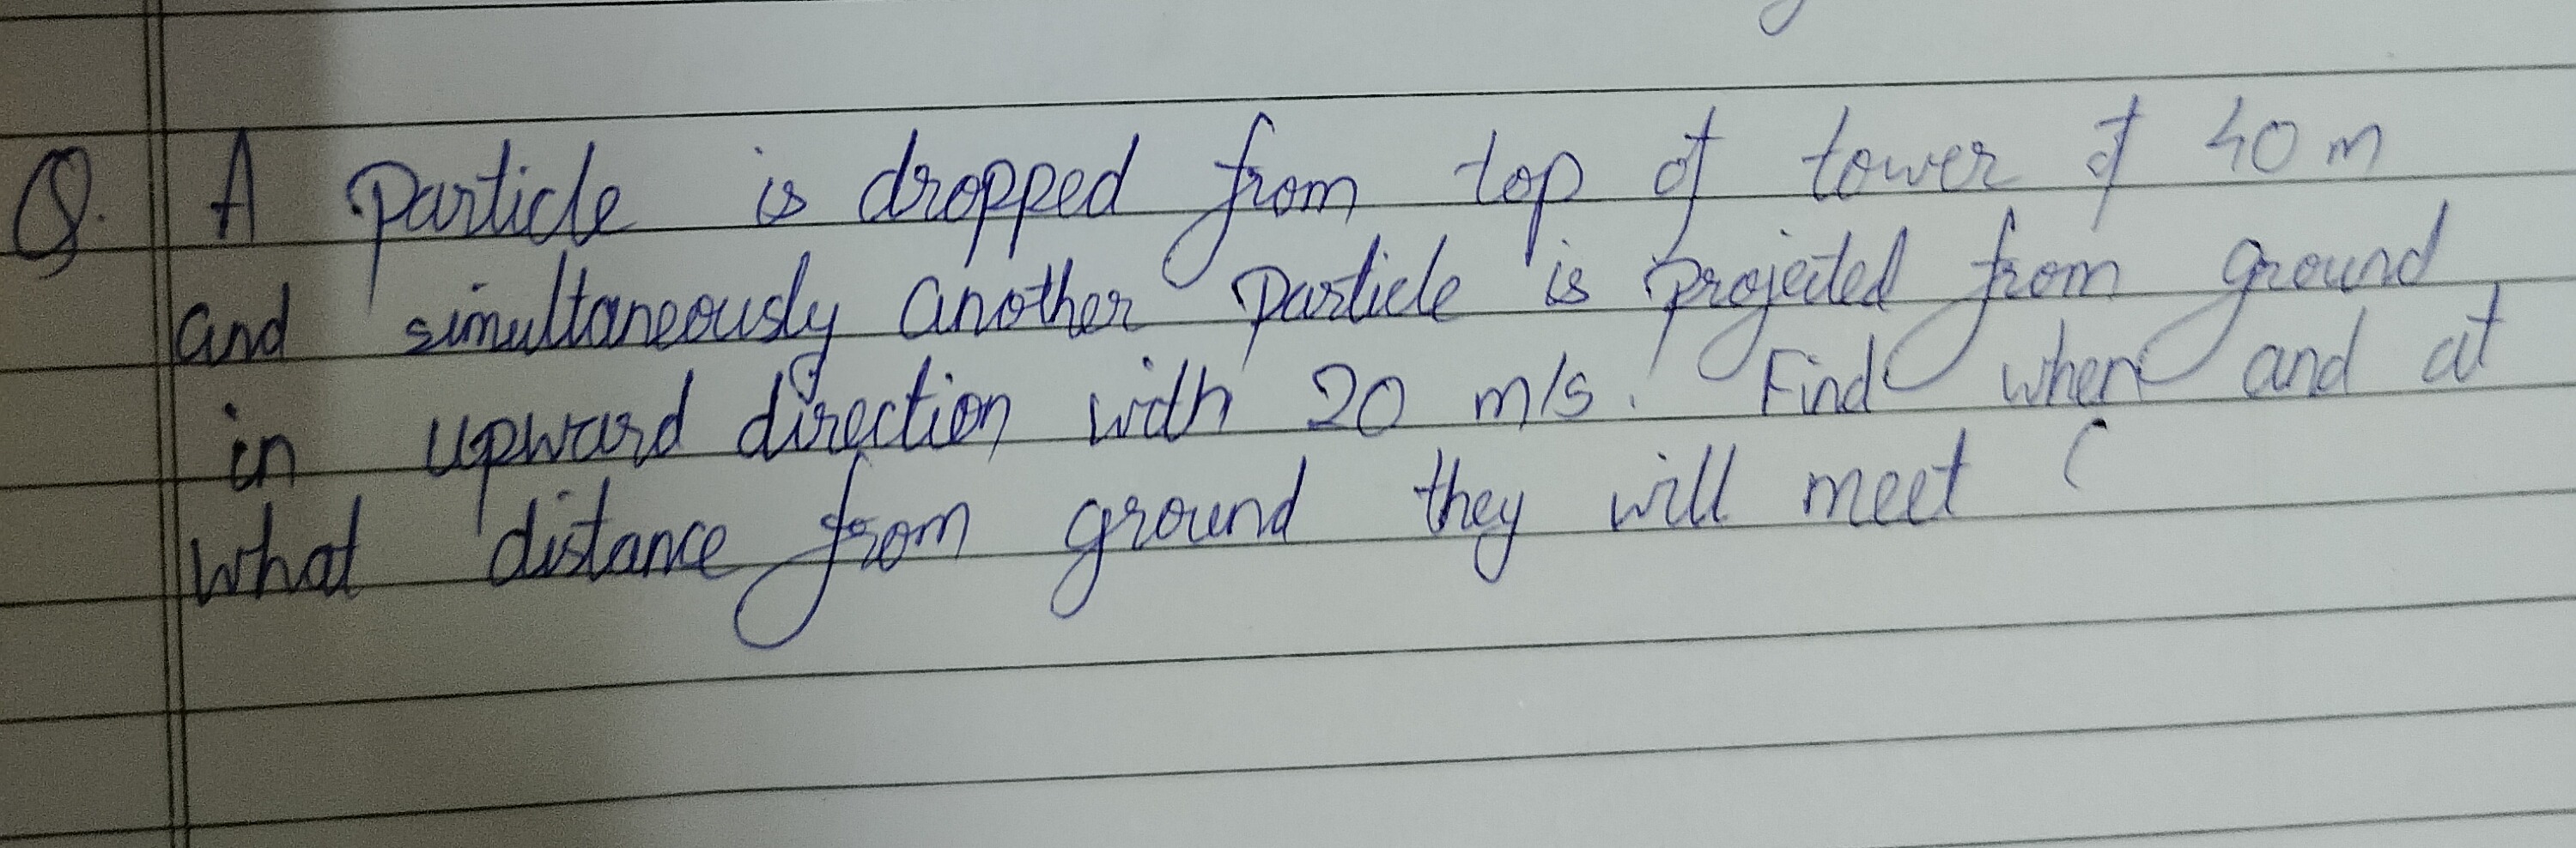 Q. A Particle is dropped from top of tower of 40 m
and simultaneously another Particle is projected from ground
in upward direction with 20 m/s. Find when and at
what distance from ground they will meet ?